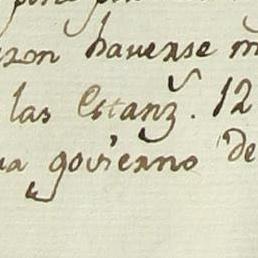 zon havense m
las Estanz.ˢ 12
va govierno de